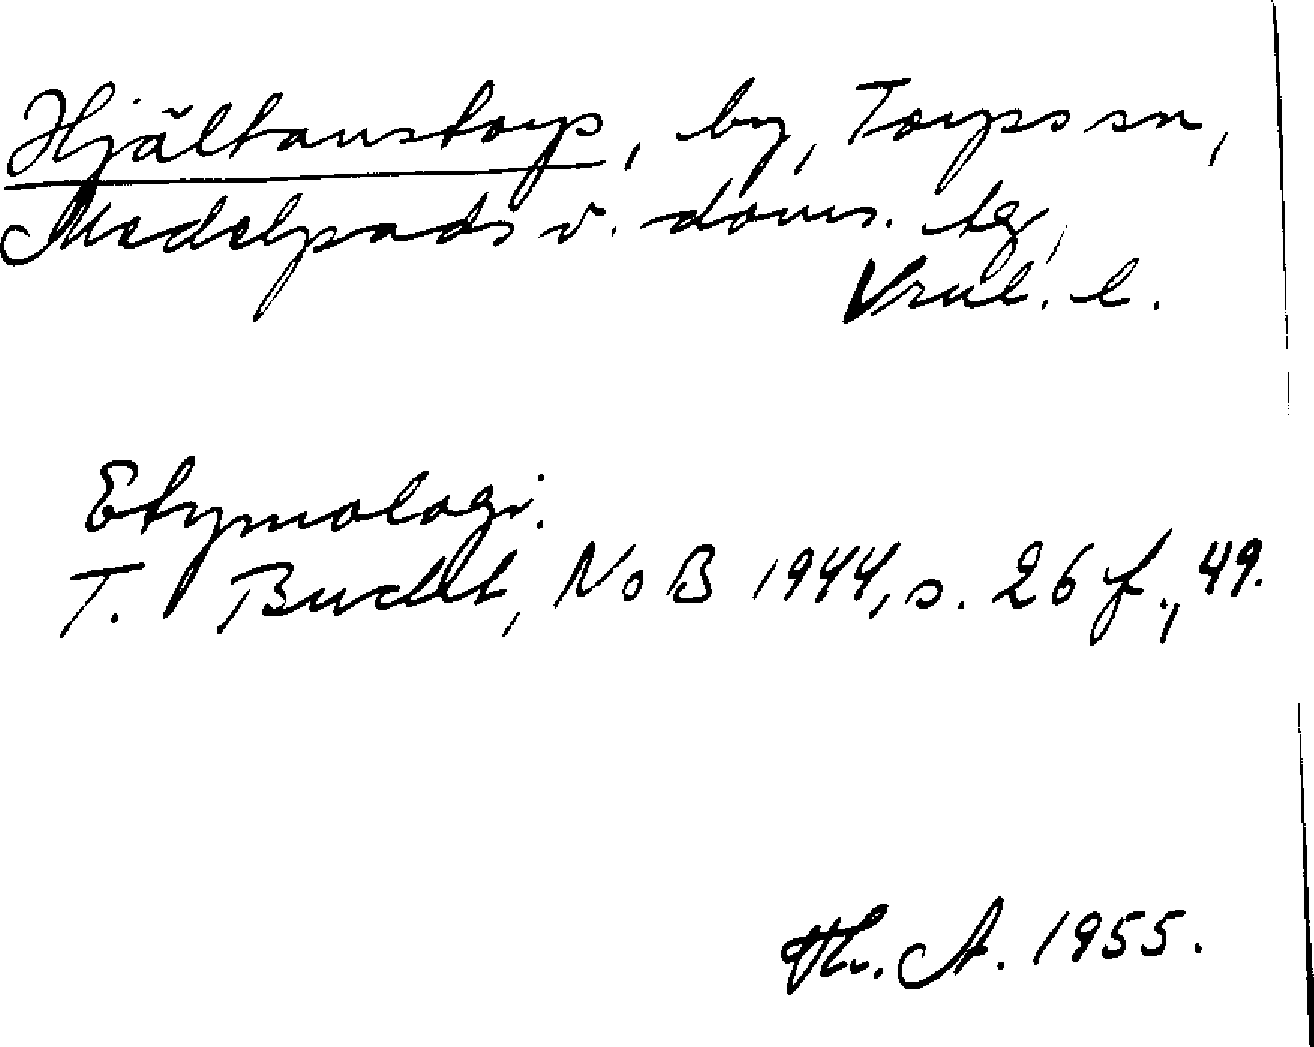 Hjältanstorp, by, Torps sn,
Medelpads v. doms. tg,
Vrnl. l.
Etymologi.
T. Bucht, NoB 1944, s. 26 f., 49.
Th. A. 1955.